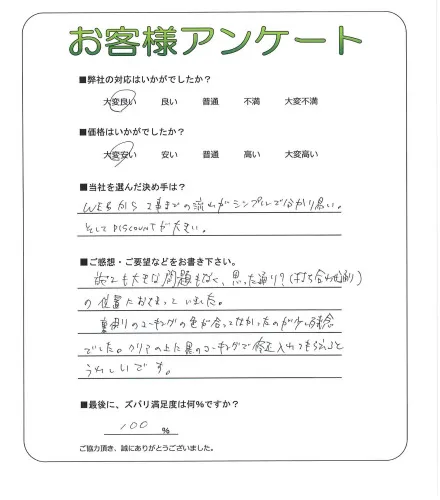 お客様アンケート
■弊社の対応はいかがでしたか？
大変良い 良い 普通 不満 大変不満
■価格はいかがでしたか？
大変安い 安い 普通 高い 大変高い
■当社を選んだ決め手は？
WEBから工事までの流れがシンプルで分かり易い。
そして DISCOUNTが大きい。
■ご感想・ご要望などをお書き下さい。
も大きな問題もなく、思った通り？(打ち合わせ通り)
の位置におさまっていました。
裏周りのコーキングの色が合ってなかったのが少し残念
でした。クリアの上に黒のコーキングで修正入れてもらうと
うれしいです。
■最後に、ズバリ満足度は何％ですか？
100 ％
ご協力頂き、誠にありがとうございました。